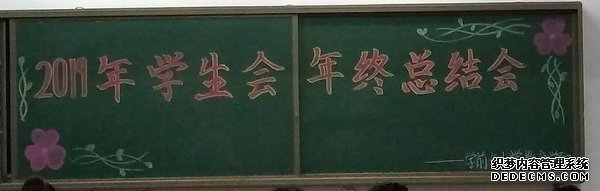 2019年学生会 年终总结会
织梦内容管理系统
DEDECMS.COM